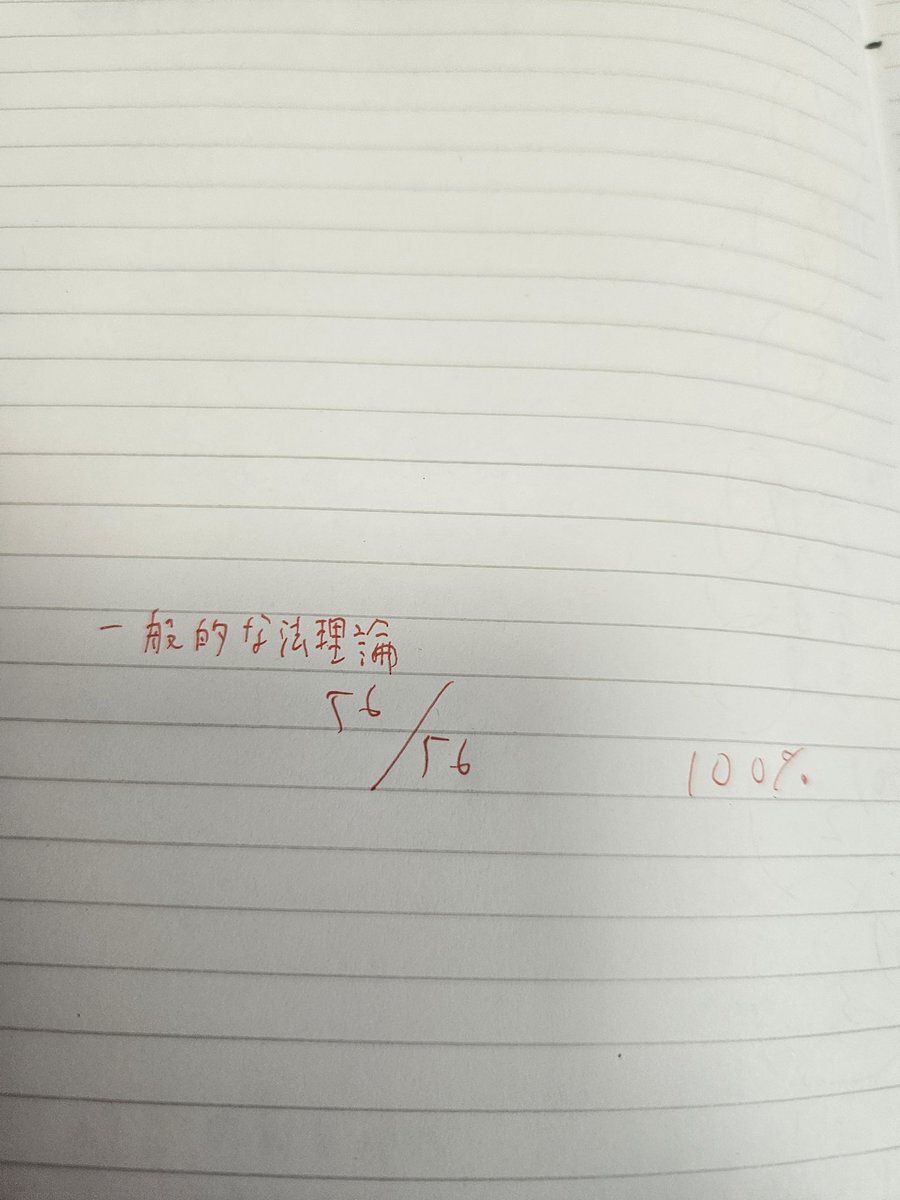 一般的な法理論
56/56
100%